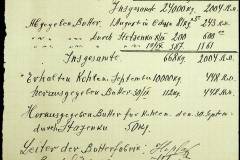 Insgesamt 24000 kg 2004 R.o.
Abgegeben Butter, 1 August 81 kg 243 R.o.
" " durch Stetsenko 200 600 "
" " " 10/IX 387 1161
Insgesamt 668 kg 2004 R.o.
Erhalten Kohlen, September 10000 kg 448 R.o.
herausgegeben Butter 30/IX 112 kg 448 R.o.
Herausgegeben Butter für Kohlen, den 30. Septem.
durch Stazenko 50 kg.
Leiter der Butterfabrik: